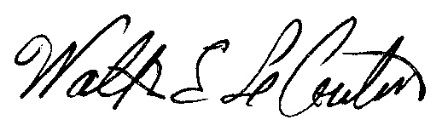 Walter E Le Couteur